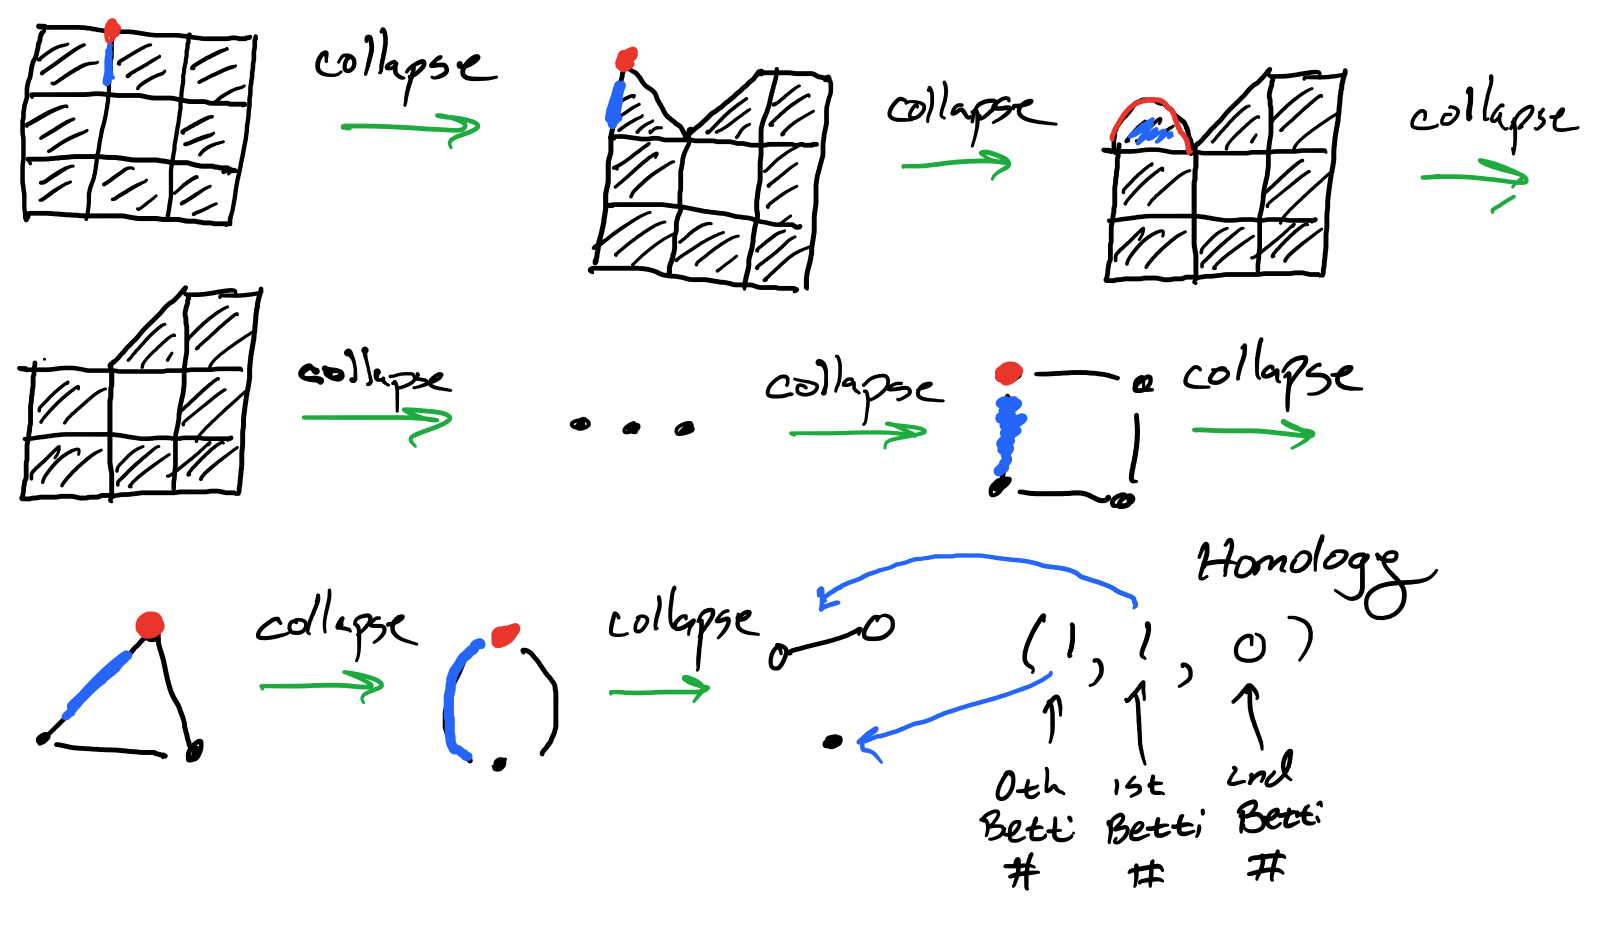 collapse
collapse
collapse
collapse
collapse
collapse
collapse
collapse
Homology
(1, 1, 0)
0th
Betti
#
1st
Betti
#
2nd
Betti
#